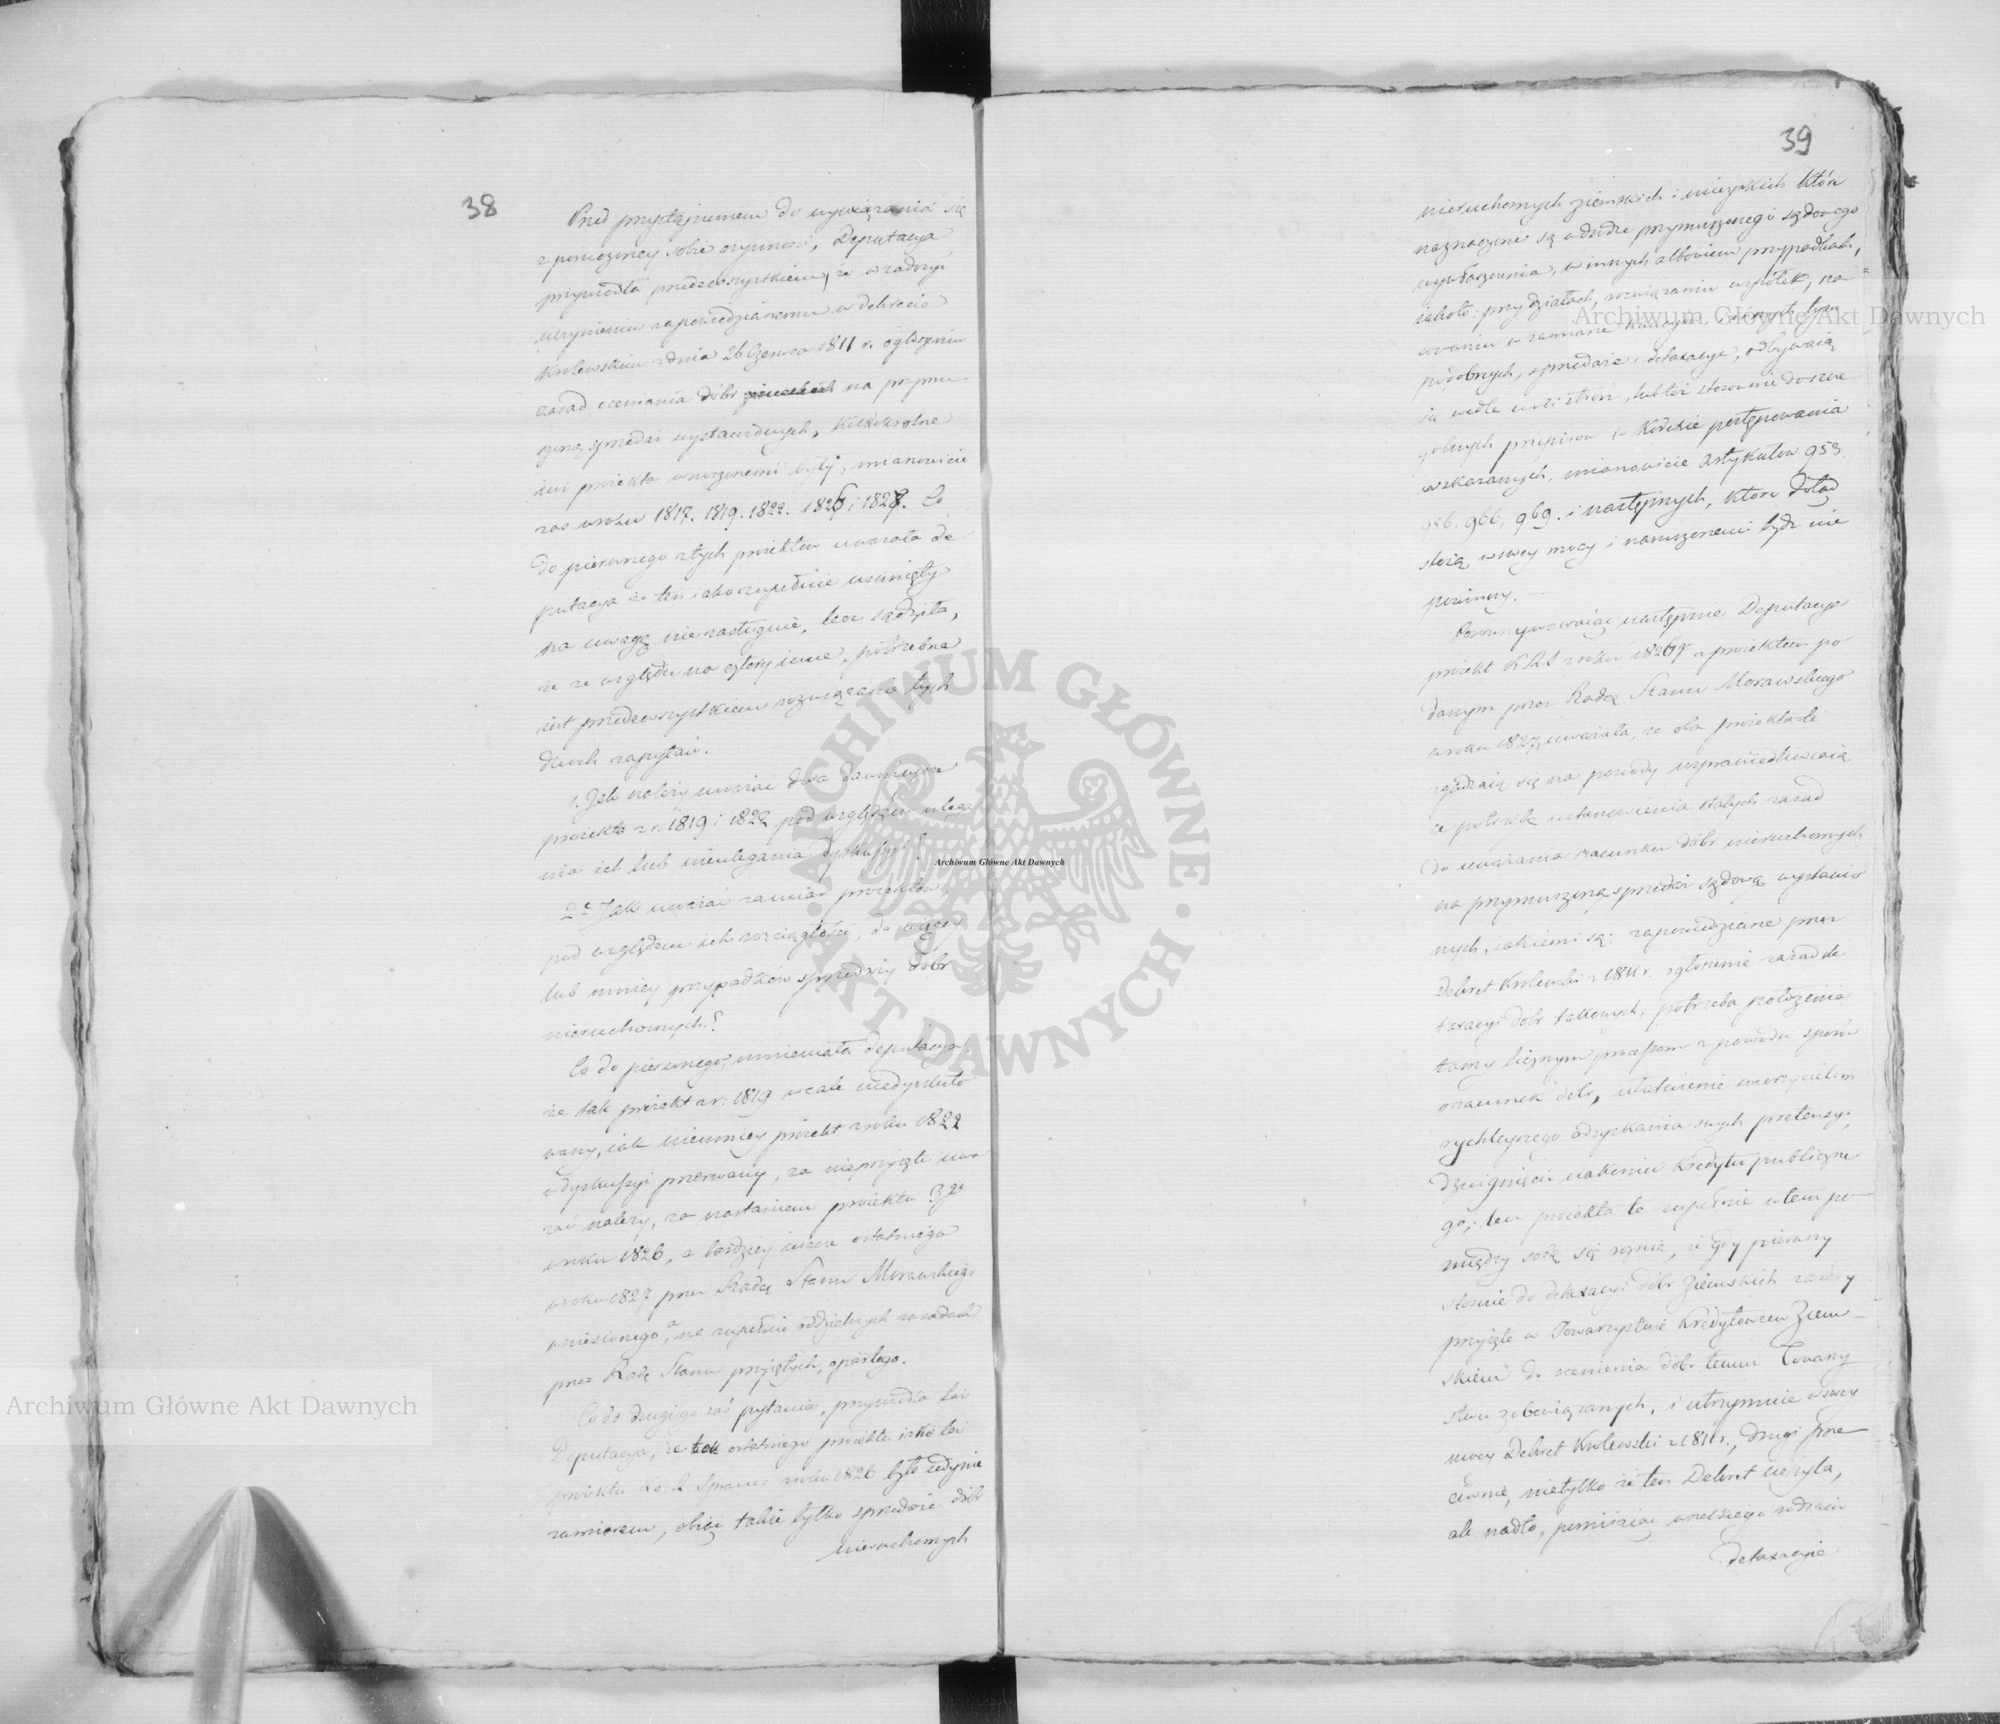 38
Przed przystąpieniem do wywiązania się
z poruczoney sobie czynności, Deputacya
przywiodła przedewszystkiem, że w zadosyć
uczynieniu zapowiedzianemu w dekrecie
Królewskim z dnia 26 Czerwca 1811 r. ogłoszeniu
zasad oceniania dóbr na przymu
szoną sprzedaż wystawionych, kilkokrotne
iuż proiekta wnoszonemi były, mianowicie
zaś w roku 1817. 1819. 1822. 1826 i 1827. Co
do pierwszego z tych proiektów uważała De
putacya że ten iako zupełnie usunięty
na uwagę nie zasługuie, lecz sądziła,
że ze względu na cztery inne, potrzebne
iest przedewszystkiem rozwiązanie tych
dwóch zapytań.
1. Jak należy uważać dwa dawnieysze
proiekta z r. 1819 i 1822 pod względem ulega
nia ich lub nieulegania dyskussyi?
2e Jak uważać zamiar proiektów
pod względem ich rozciągłości, do więcey
lub mniey przypadków sprzedaży dóbr
nieruchomych?
Co do pierwszego, mniemała deputacya,
że tak proiekt z r. 1819 wcale niedyskuto
wany, iak niemniey proiekt z roku 1822
w dyskussyi przerwany, za nieprzyięte uwa
żać należy, za nastaniem proiektu 3go
w roku 1826, a bardziey ieszcze ostatniego
w roku 1827 przez Radcę Stanu Morawskiego
wniesionego, a na zupełnie oddzielnych zasadach
przez Radę Stanu przyiętych, opartego.
Co do drugiego zaś pytania, przywiodła taż
Deputacya, że tak ostatniego proiektu iako też
proiektu Ko: R. Spraw: z roku 1826 było iedynie
zamiarem, obiąć takie tylko sprzedaże dóbr
nieruchomych
39
nieruchomych ziemskich i mieyskich które
naznaczone są w drodze przymuszonego sądowego
wywłaszczenia, w innych albowiem przypadkach,
iakoto: przy działach, rozwiązaniu spółek, na
bywaniu w zamian kaucyi i innych tym
podobnych, sprzedaże i detaxacye, odbywaią
się wedle woli stron, lub też stosownie do szcze
gólnych przepisów w Kodexie postępowania
wskazanych, mianowicie Artykułów 953.
956. 966. 969. i następnych, które dotąd
stoią w swey mocy i naruszonemi bydź nie
powinny. —
Porównywaiąc następnie Deputacya
proiekt KRS z roku 1826 z proiektem po
danym przez Radcę Stanu Morawskiego
w roku 1827, uważała, że oba proiekta te
zgadzaią się na powody usprawiedliwiaią
ce potrzebę ustanowienia stałych zasad
do uważania szacunku dóbr nieruchomych
na przymuszoną sprzedaż sądową wystawio
nych, iakiemi są: zapowiedziane przez
Dekret Królewski z 1811 r. ogłoszenie zasad de
taxacyi dóbr takowych, potrzeba położenia
tamy licznym processom z powodu sporów
o szacunek dóbr, ułatwienie wierzycielom
rychleyszego odzyskania swych pretensyi,
dźwignięcie nakoniec Kredytu publiczne
go; lecz proiekta te zupełnie w tem po
między sobą się różnią, że gdy pierwszy
stosuie do detaxacyi dóbr Ziemskich zasady
przyięte w Towarzystwie Kredytowem Ziem—
skiem do ocenienia dóbr temuż Towarzy
stwu zobowiązanych, i utrzymuie w swey
mocy Dekret Królewski z 1811 r., drugi prze—
ciwnie, nietylko że ten Dekret uchyla,
ale nadto, pomiiaiąc wszelkiego rodzaiu
detaxacyie
Archiwum Główne Akt Dawnych
Archiwum Główne Akt Dawnych
Archiwum Główne Akt Dawnych
ARCHIWUM GŁÓWNE · AKT DAWNYCH ·